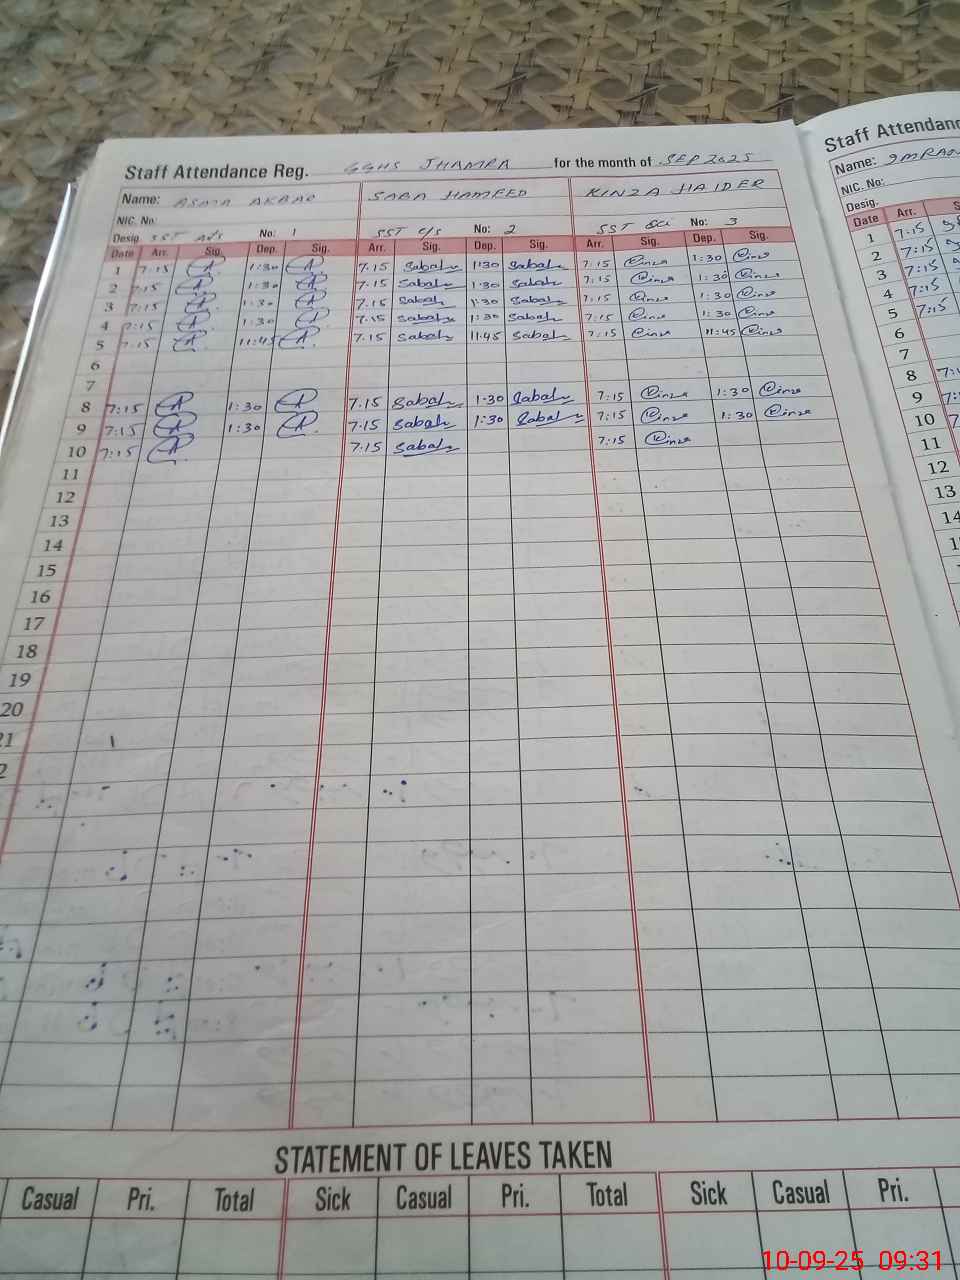 Staff Attendance Reg. GGHS JHAMRA for the month of SEP 2025
Name: ASMA AKBAR SABA HAMEED KINZA HAIDER
NIC. No:
Desig. SST Arts No: 1 SST C/S No: 2 SST Sci No: 3
Date Arr. Sig. Dep. Sig. Arr. Sig. Dep. Sig. Arr. Sig. Dep. Sig.
1 7:15 1:30 7:15 Sabah 1:30 Sabah 7:15 1:30
2 7:15 1:30 7:15 Sabah 1:30 Sabah 7:15 1:30
3 7:15 1:30 7:15 Sabah 1:30 Sabah 7:15 1:30
4 7:15 1:30 7:15 Sabah 1:30 Sabah 7:15 1:30
5 7:15 11:45 7:15 Sabah 11:45 Sabah 7:15 11:45
6
7
8 7:15 1:30 7:15 Sabah 1:30 Sabah 7:15 1:30
9 7:15 1:30 7:15 Sabah 1:30 Sabah 7:15 1:30
10 7:15 7:15 Sabah 7:15
11
12
13
14
15
16
17
18
19
20
21
2
STATEMENT OF LEAVES TAKEN
Casual Pri. Total Sick Casual Pri. Total Sick Casual Pri.
Staff Attendanc
Name: IMRA
NIC. No:
Desig.
Date Arr. S
1 7:15
2 7:15
3 7:15
4 7:15
5 7:15
6
7
8
9
10
11
12
13
14
10-09-25 09:31